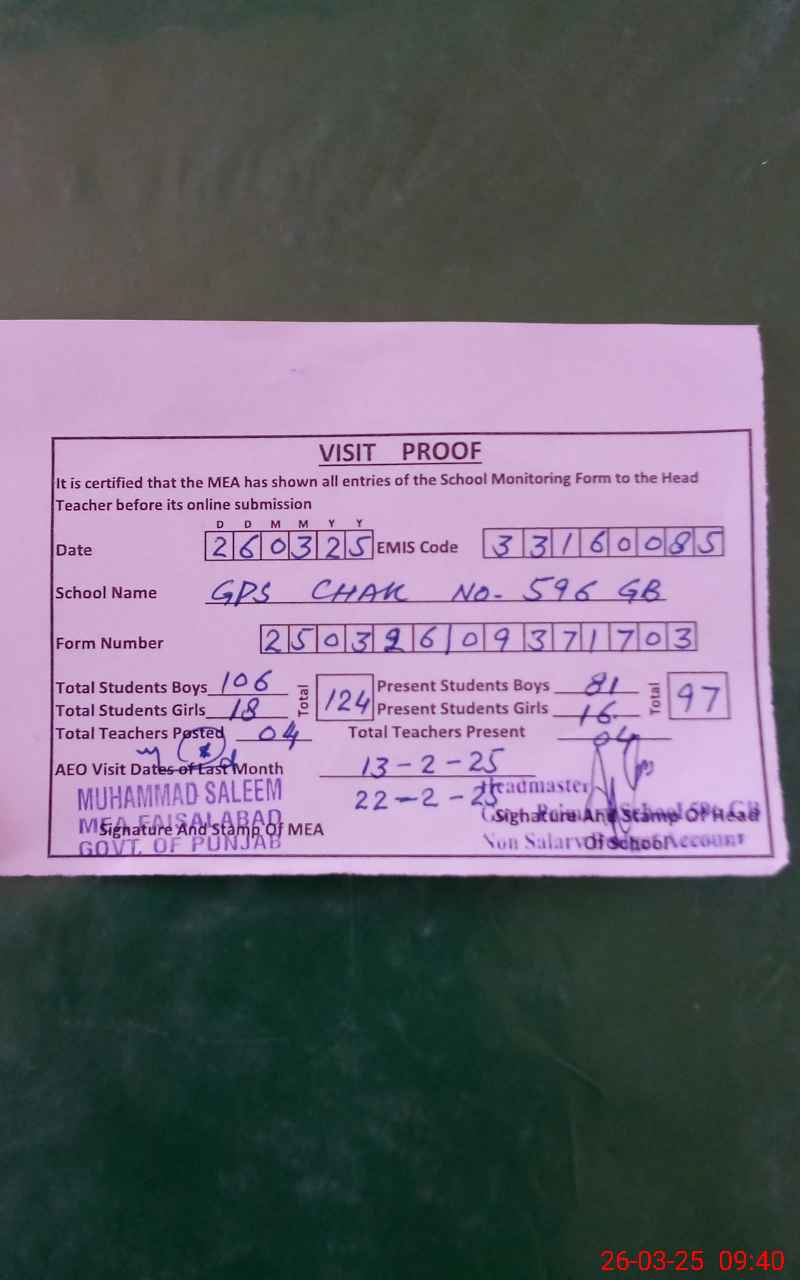 VISIT PROOF
It is certified that the MEA has shown all entries of the School Monitoring Form to the Head
Teacher before its online submission
D D M M Y Y
Date 260325 EMIS Code 33160085
School Name GPS CHAK NO- 596 GB
Form Number 250326109371703
Total Students Boys 106 Total 124 Present Students Boys 81 Total 97
Total Students Girls 18 Present Students Girls 16
Total Teachers Posted 04 Total Teachers Present 04
AEO Visit Dates of Last Month 13-2-25
22-2-25
MUHAMMAD SALEEM
MEA FAISALABAD
GOVT. OF PUNJAB
Signature And Stamp Of MEA
Headmaster
School 596 GB
Non Salary Account
Signature And Stamp Of Head
Of School
26-03-25 09:40